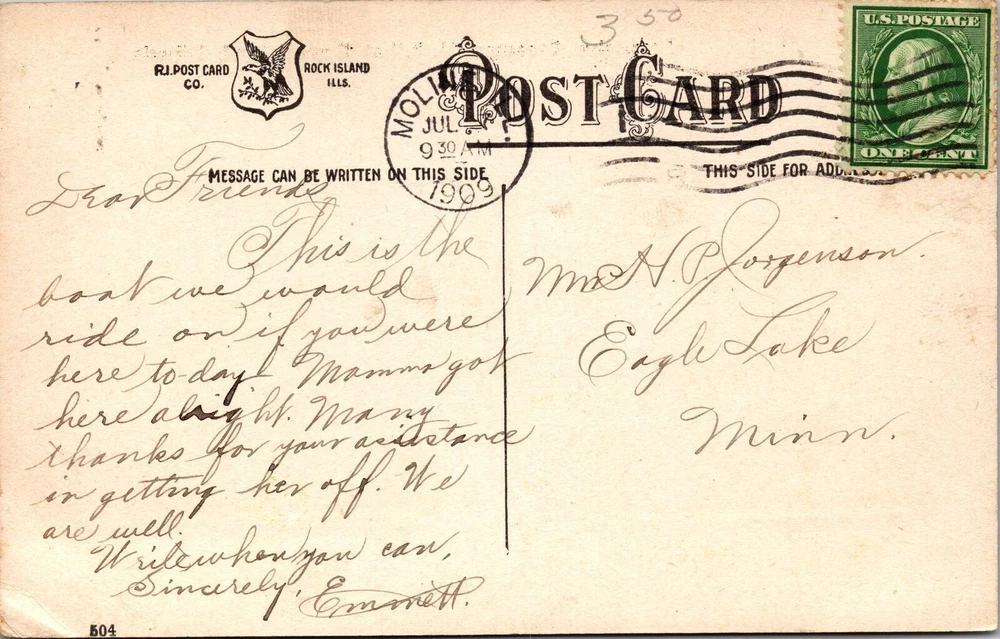 3 50
U.S. POSTAGE
ONE CENT
R.I. POST CARD
CO.
ROCK ISLAND
ILLS.
POST CARD
MOLINE
JUL
9 30 AM
1909
MESSAGE CAN BE WRITTEN ON THIS SIDE
THIS SIDE FOR
Dear Friends
This is the
boat we would
ride on if you were
here to-day. Mamma got
here alright. Many
thanks for your assistance
in getting her off. We
are well.
Write when you can,
Sincerely, Emmett.
H. P. Jorgenson.
Eagle Lake
Minn.
504